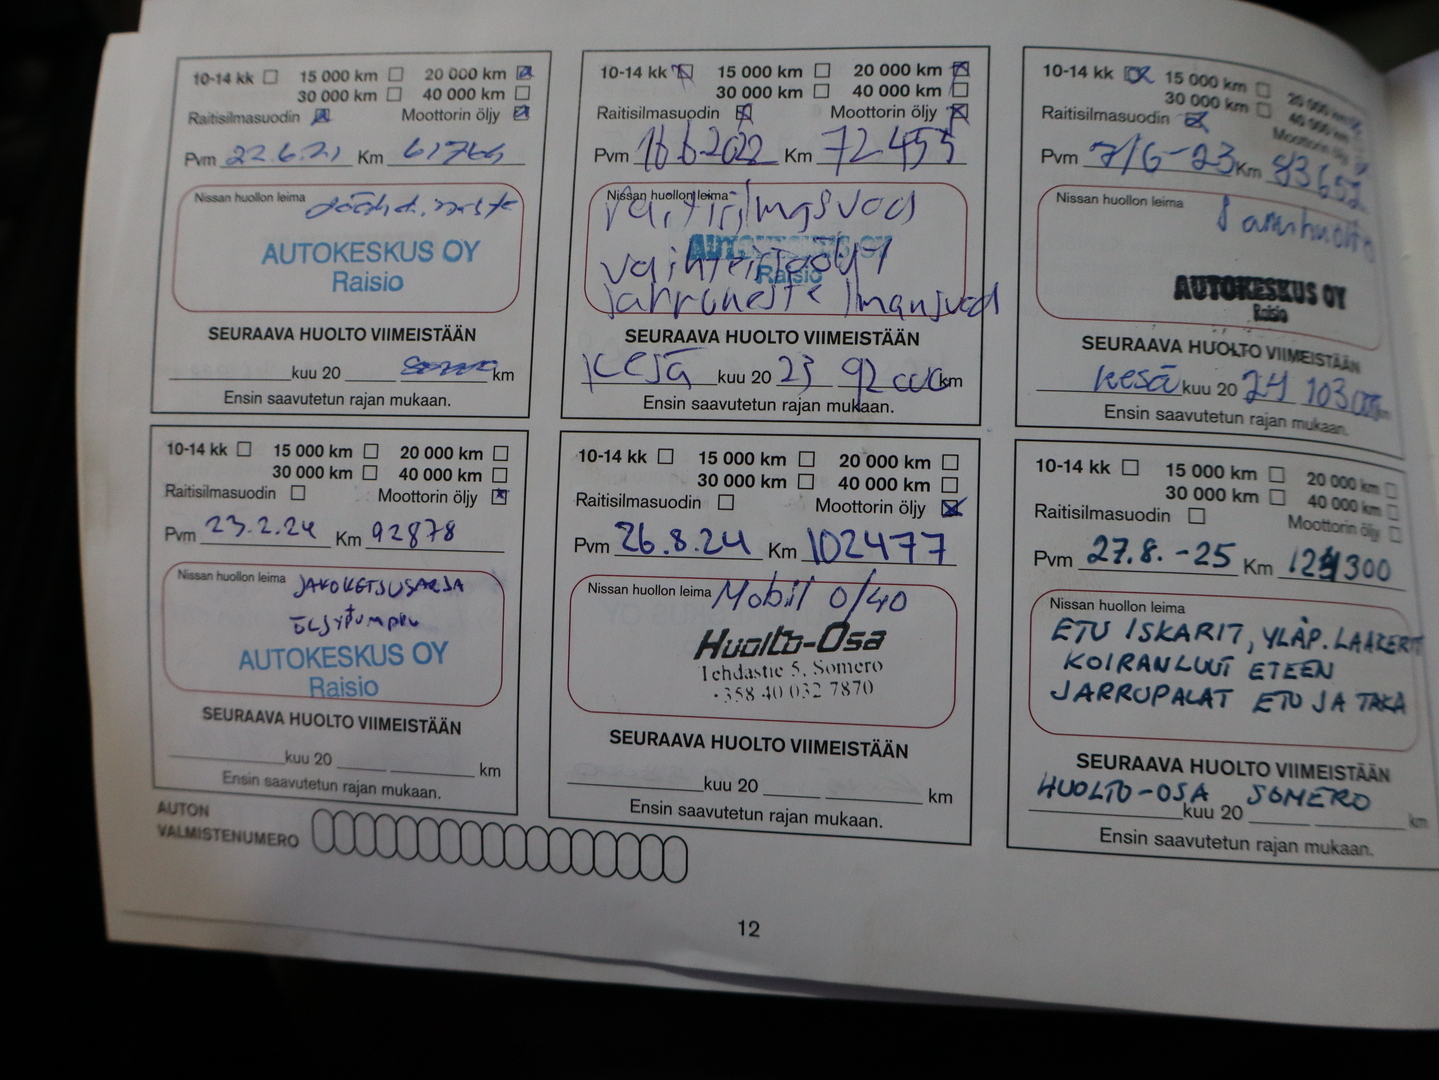 10-14 kk 15 000 km 20 000 km
30 000 km 40 000 km
Raitisilmasuodin Moottorin öljy
Pvm 22.6.21 Km
Nissan huollon leima
AUTOKESKUS OY
Raisio
SEURAAVA HUOLTO VIIMEISTÄÄN
kuu 20 km
Ensin saavutetun rajan mukaan.
10-14 kk 15 000 km 20 000 km
30 000 km 40 000 km
Raitisilmasuodin Moottorin öljy
Pvm 16.6.2022 Km 72455
Nissan huollon leima
AUTOKESKUS OY
Raisio
jarruneste ilmansuod
SEURAAVA HUOLTO VIIMEISTÄÄN
Kesä kuu 20 23 92 000 km
Ensin saavutetun rajan mukaan.
10-14 kk 15 000 km 20 000 km
30 000 km 40 000 km
Raitisilmasuodin Moottorin öljy
Pvm 7/6-23 Km 83652
Nissan huollon leima
AUTOKESKUS OY
Raisio
SEURAAVA HUOLTO VIIMEISTÄÄN
kesä kuu 20 24 103 000 km
Ensin saavutetun rajan mukaan.
10-14 kk 15 000 km 20 000 km
30 000 km 40 000 km
Raitisilmasuodin Moottorin öljy
Pvm 23.2.24 Km 92878
Nissan huollon leima JAKOKETJUSARJA
ÖLJYPUMPPU
AUTOKESKUS OY
Raisio
SEURAAVA HUOLTO VIIMEISTÄÄN
kuu 20 km
Ensin saavutetun rajan mukaan.
10-14 kk 15 000 km 20 000 km
30 000 km 40 000 km
Raitisilmasuodin Moottorin öljy
Pvm 26.8.24 Km 102477
Nissan huollon leima Mobil 0/40
Huolto-Osa
Tehdastie 5, Somero
+358 40 032 7870
SEURAAVA HUOLTO VIIMEISTÄÄN
kuu 20 km
Ensin saavutetun rajan mukaan.
10-14 kk 15 000 km 20 000 km
30 000 km 40 000 km
Raitisilmasuodin Moottorin öljy
Pvm 27.8.-25 Km
Nissan huollon leima
ETU ISKARIT, YLÄP. LAAKERIT
KOIRANLUUT ETEEN
JARRUPALAT ETU JA TAKA
SEURAAVA HUOLTO VIIMEISTÄÄN
HUOLTO-OSA SOMERO
kuu 20 km
Ensin saavutetun rajan mukaan.
AUTON
VALMISTENUMERO
12